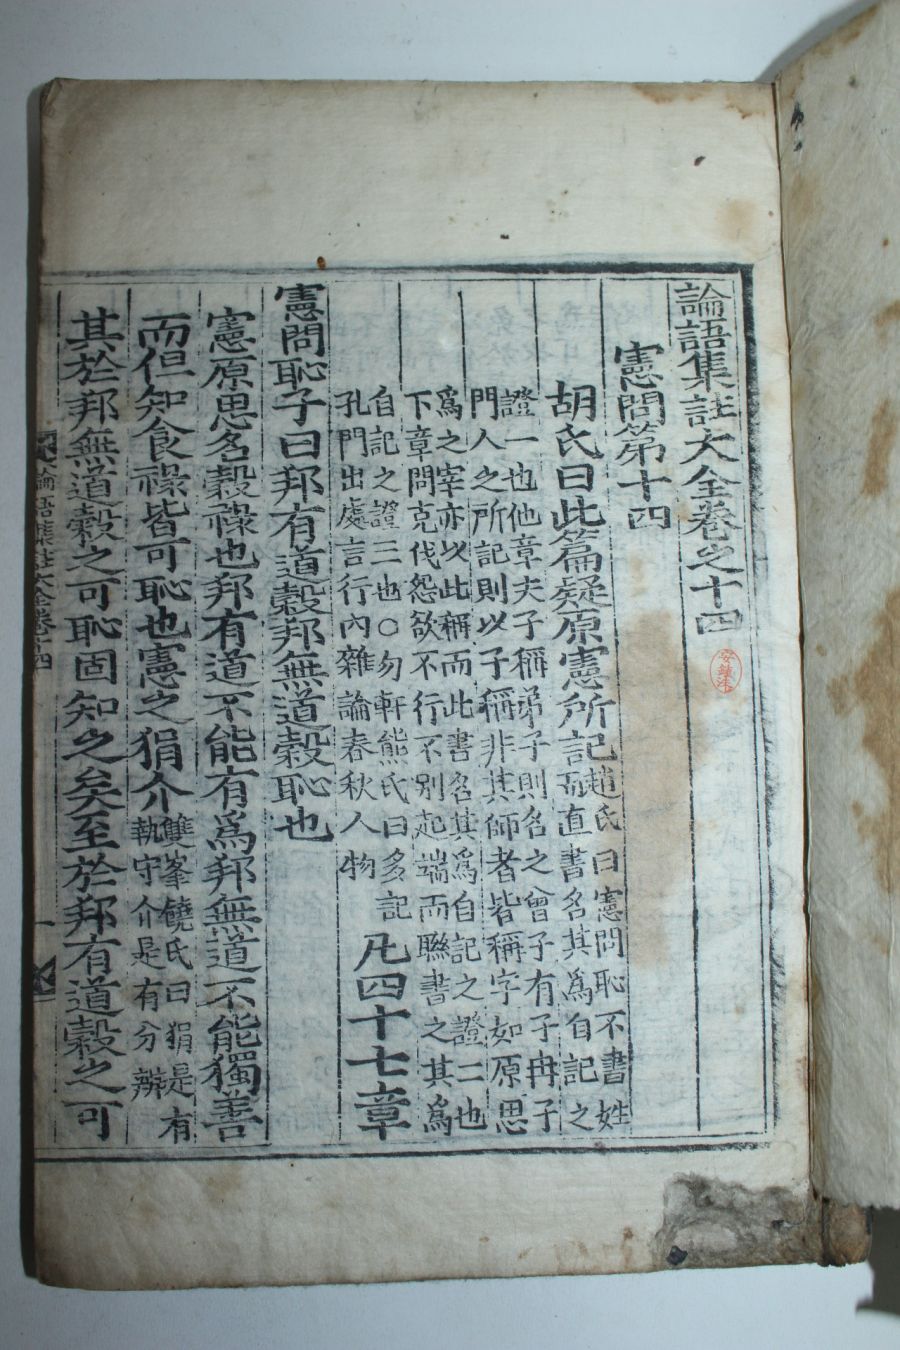 論語集註大全卷之十四
憲問第十四
胡氏曰此篇疑原憲所記趙氏曰憲問恥不書姓
而直書名其爲自記之
證一也他章夫子稱弟子則名之曾子有子冉子
門人之所記則以子稱非其師者皆稱字如原思
爲之宰亦以此稱而此書名其爲自記之證二也
下章問克伐怨欲不行不別起端而聯書之其爲
自記之證三也○勿軒熊氏曰多記
孔門出處言行內雜論春秋人物
凡四十七章
憲問恥子曰邦有道穀邦無道穀恥也
憲原思名穀祿也邦有道不能有爲邦無道不能獨善
而但知食祿皆可恥也憲之狷介雙峯饒氏曰狷是有
執守介是有分辨
其於邦無道穀之可恥固知之矣至於邦有道穀之可
論語集註大全卷之十四
一